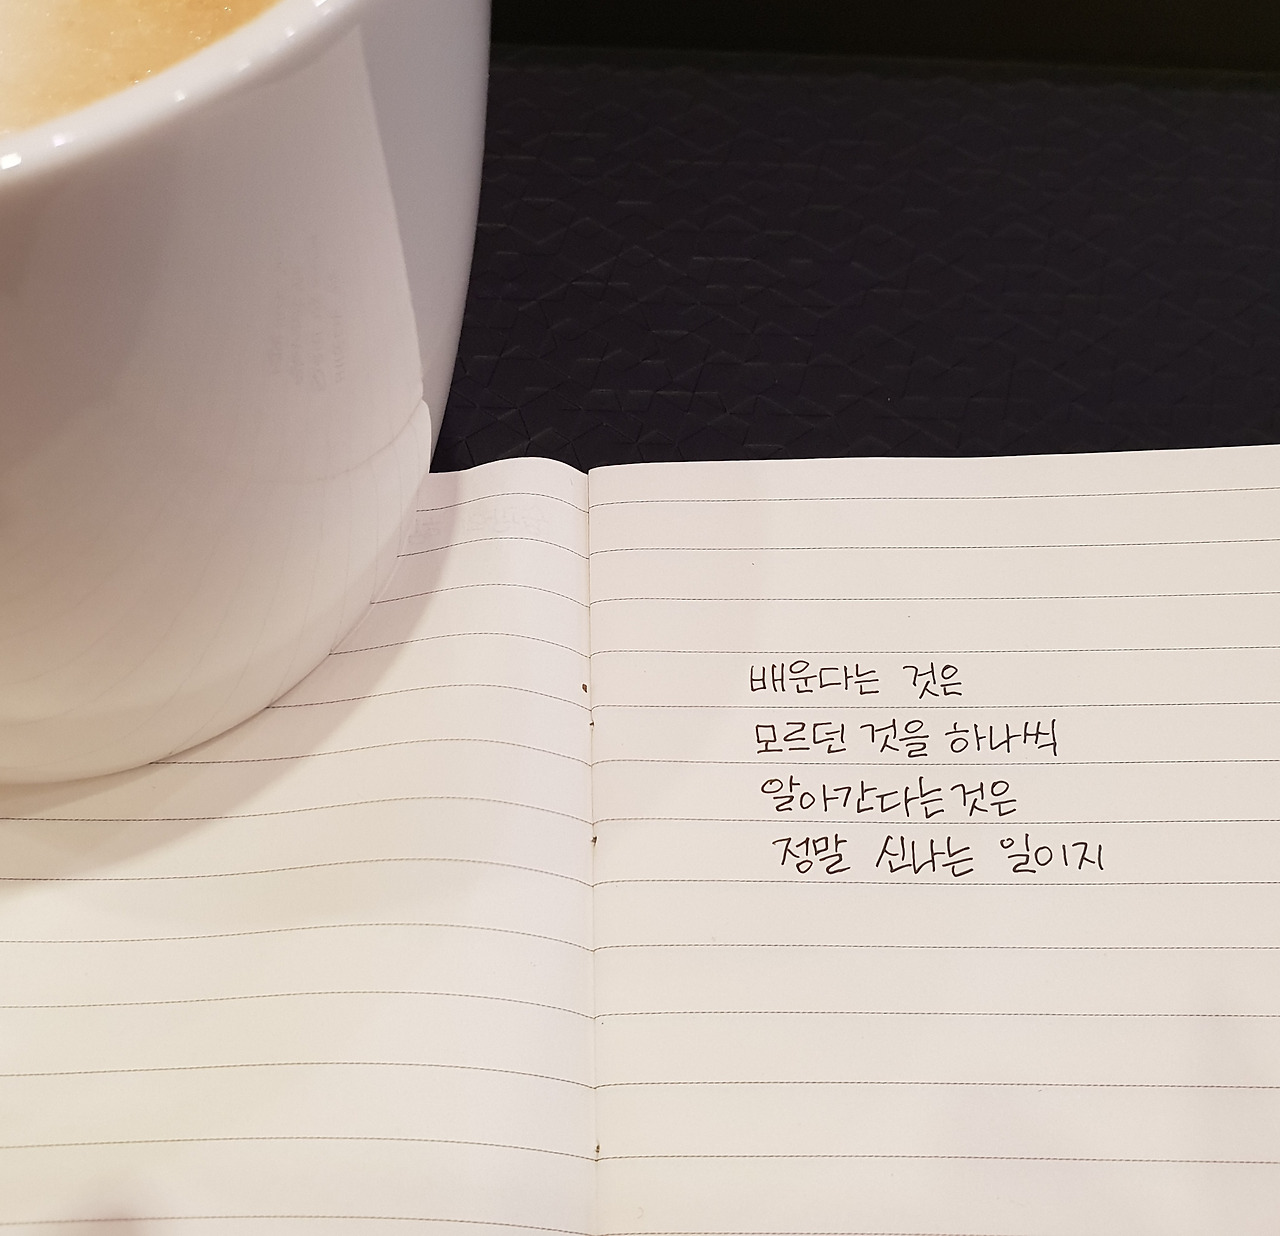 배운다는 것은
모르던 것을 하나씩
알아간다는것은
정말 신나는 일이지